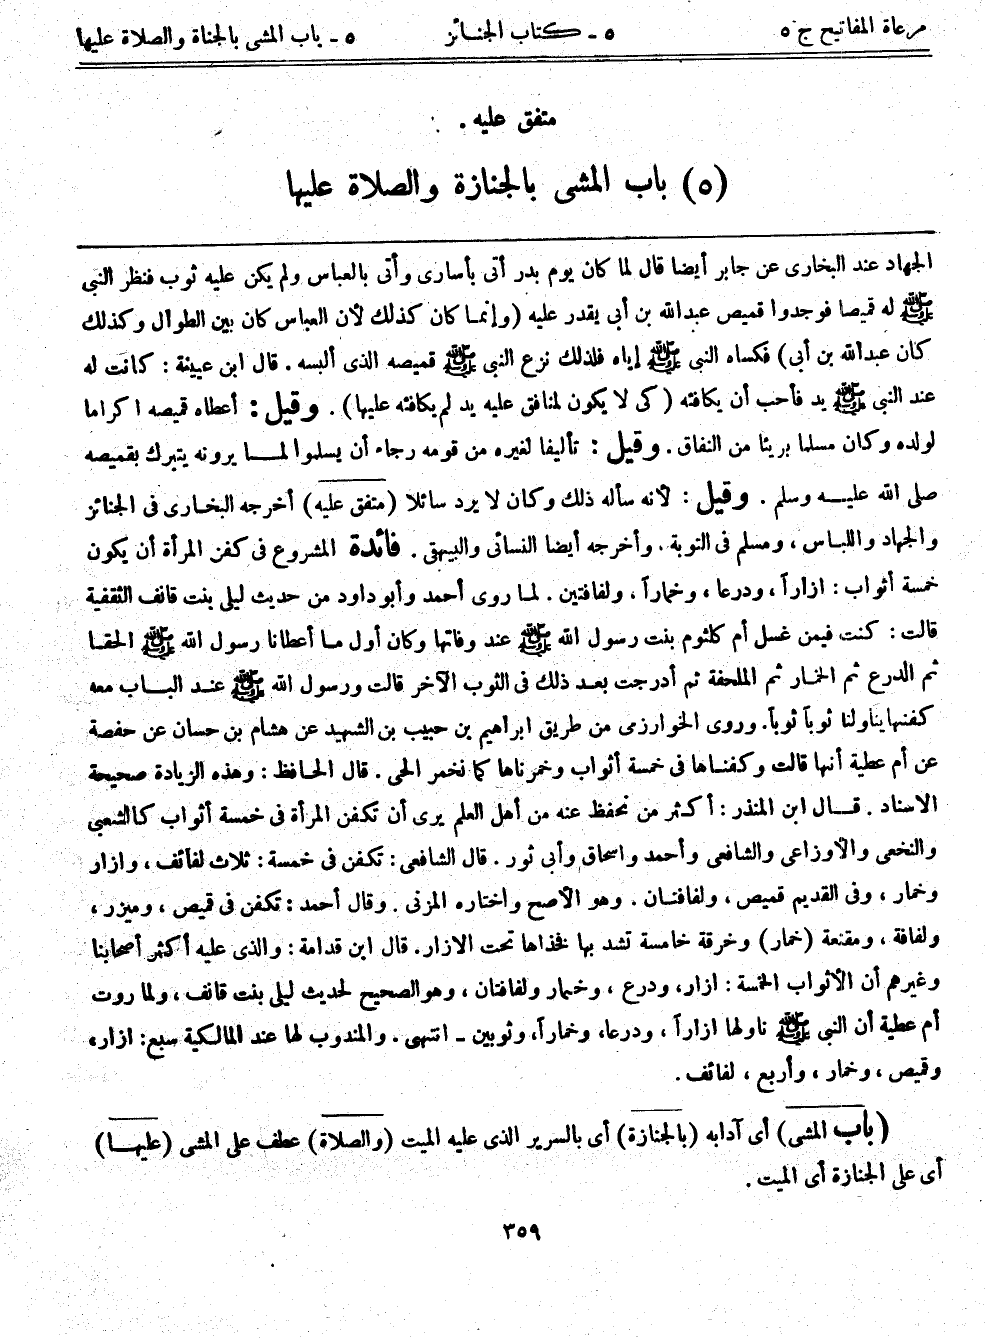 مرعاة المفاتيح ج ٥ ٥ ـ كتاب الجنائز ٥ ـ باب المشى بالجناة والصلاة عليها
متفق عليه .
(٥) باب المشى بالجنازة والصلاة عليها
الجهاد عند البخارى عن جابر أيضا قال لما كان يوم بدر أتى بأسارى وأتى بالعباس ولم يكن عليه ثوب فنظر النبي
ﷺ له قميصا فوجدوا قميص عبدالله بن أبي يقدر عليه (وإنما كان كذلك لأن العباس كان بين الطوال وكذلك
كان عبدالله بن أبي) فكساه النبي ﷺ إياه فلذلك نزع النبي ﷺ قميصه الذى ألبسه . قال ابن عيينة : كانت له
عند النبي ﷺ يد فأحب أن يكافئه (كى لا يكون لمنافق عليه يد لم يكافئه عليها) . وقيل : أعطاه قميصه اكراما
لولده وكان مسلما بريئا من النفاق . وقيل : تأليفا لغيره من قومه رجاء أن يسلموا لما يرونه يتبرك بقميصه
صلى الله عليه وسلم . وقيل : لأنه سأله ذلك وكان لا يرد سائلا (متفق عليه) أخرجه البخارى فى الجنائز
والجهاد واللباس ، ومسلم فى التوبة . وأخرجه أيضا النسائى والبيهقى . فائدة المشروع فى كفن المرأة أن يكون
خمسة أثواب : ازاراً ، ودرعا ، وخماراً ، ولفافتين . لما روى أحمد وأبو داود من حديث ليلى بنت قانف الثقفية
قالت : كنت فيمن غسل أم كلثوم بنت رسول الله ﷺ عند وفاتها وكان أول ما أعطانا رسول الله ﷺ الحقا
ثم الدرع ثم الخمار ثم الملحفة ثم أدرجت بعد ذلك فى الثوب الآخر قالت ورسول الله ﷺ عند الباب معه
كفنها يناولنا ثوباً ثوباً. وروى الخوارزمى من طريق ابراهيم بن حبيب بن الشهيد عن هشام بن حسان عن حفصة
عن أم عطية أنها قالت وكفناها فى خمسة أثواب وخمرناها كما نخمر الحى . قال الحافظ : وهذه الزيادة صحيحة
الاسناد . قال ابن المنذر : أكثر من نحفظ عنه من أهل العلم يرى أن تكفن المرأة فى خمسة أثواب كالشعبي
والنخعى والأوزاعى والشافعى وأحمد واسحاق وأبى ثور . قال الشافعى : تكفن فى خمسة : ثلاث لفائف ، وازار
وخمار ، وفى القديم قميص ، ولفافتان . وهو الأصح واختاره المزنى . وقال أحمد : تكفن فى قميص ، وميزر ،
ولفافة ، ومقنعة (خمار) وخرقة خامسة تشد بها فخذاها تحت الازار . قال ابن قدامة : والذى عليه أكثر أصحابنا
وغيرهم أن الأثواب الخمسة : ازار، ودرع ، وخمار ولفافتان ، وهو الصحيح لحديث ليلى بنت قانف ، ولما روت
أم عطية أن النبي ﷺ ناولها ازاراً ، ودرعا، وخماراً، وثوبين ـ انتهى . والمندوب لها عند المالكية سبع: ازار،
وقميص ، وخمار ، وأربع ، لفائف .
(باب المشى) أى آدابه (بالجنازة) أى بالسرير الذى عليه الميت (والصلاة) عطف على المشى (عليها)
أى على الجنازة أى الميت .
٣٥٩